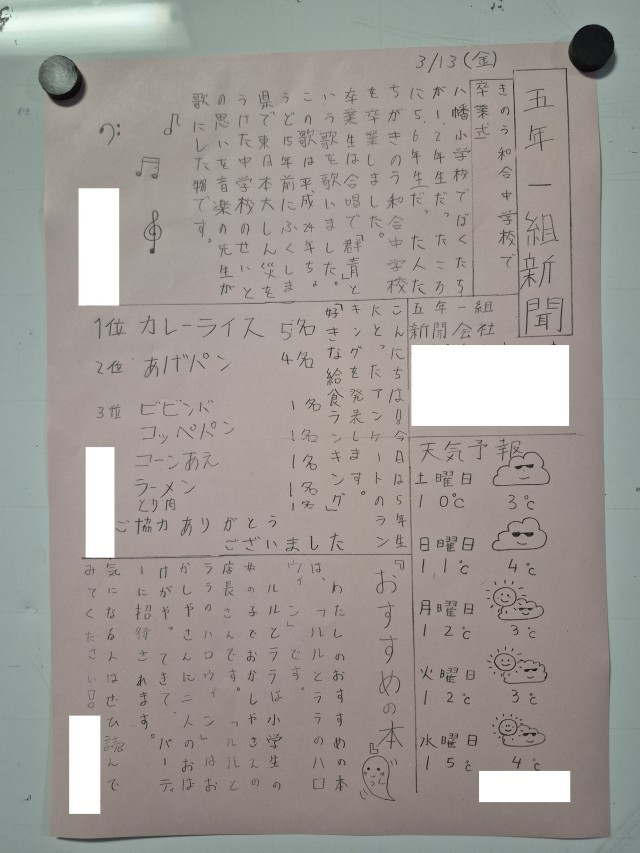 3/13(金)
五年一組新聞
きのう和合中学校で
卒業式
八幡小学校でぼくたち
が1、2年生だったころ
に5、6年生だった人た
ちがきのう和合中学校
を卒業しました。
卒業生は合唱で「群青」と
いう歌を歌いました。
この歌は平成24年ちょ
うど15年前にふくしま
県で東日本大しん災を
うけた中学校のせいと
の思いを音楽の先生が
歌にした物です。
五年一組
新聞会社
こんにちは!!今日は5年生
にとったアンケートのラン
キングを発表します。
「好きな給食ランキング」
1位 カレーライス 5名
2位 あげパン 4名
3位 ビビンバ 1名
コッペパン 1名
コーンあえ 1名
ラーメン 1名
とり肉 1名
ご協力ありがとう
ございました
天気予報
土曜日
10℃ 3℃
日曜日
11℃ 4℃
月曜日
12℃ 3℃
火曜日
12℃ 3℃
水曜日
15℃ 4℃
『おすすめの本』
わたしのおすすめの本
は、「ルルとララのハロ
ウィン」です。
ルルとララは小学生の
女の子でおかしやさんの
店長さんです。「ルルと
ララのハロウィン」はお
かしやさんに二人のおば
けがやってきて、パーティ
ーに招待されます。
気になる人はぜひ読んで
みてください!!